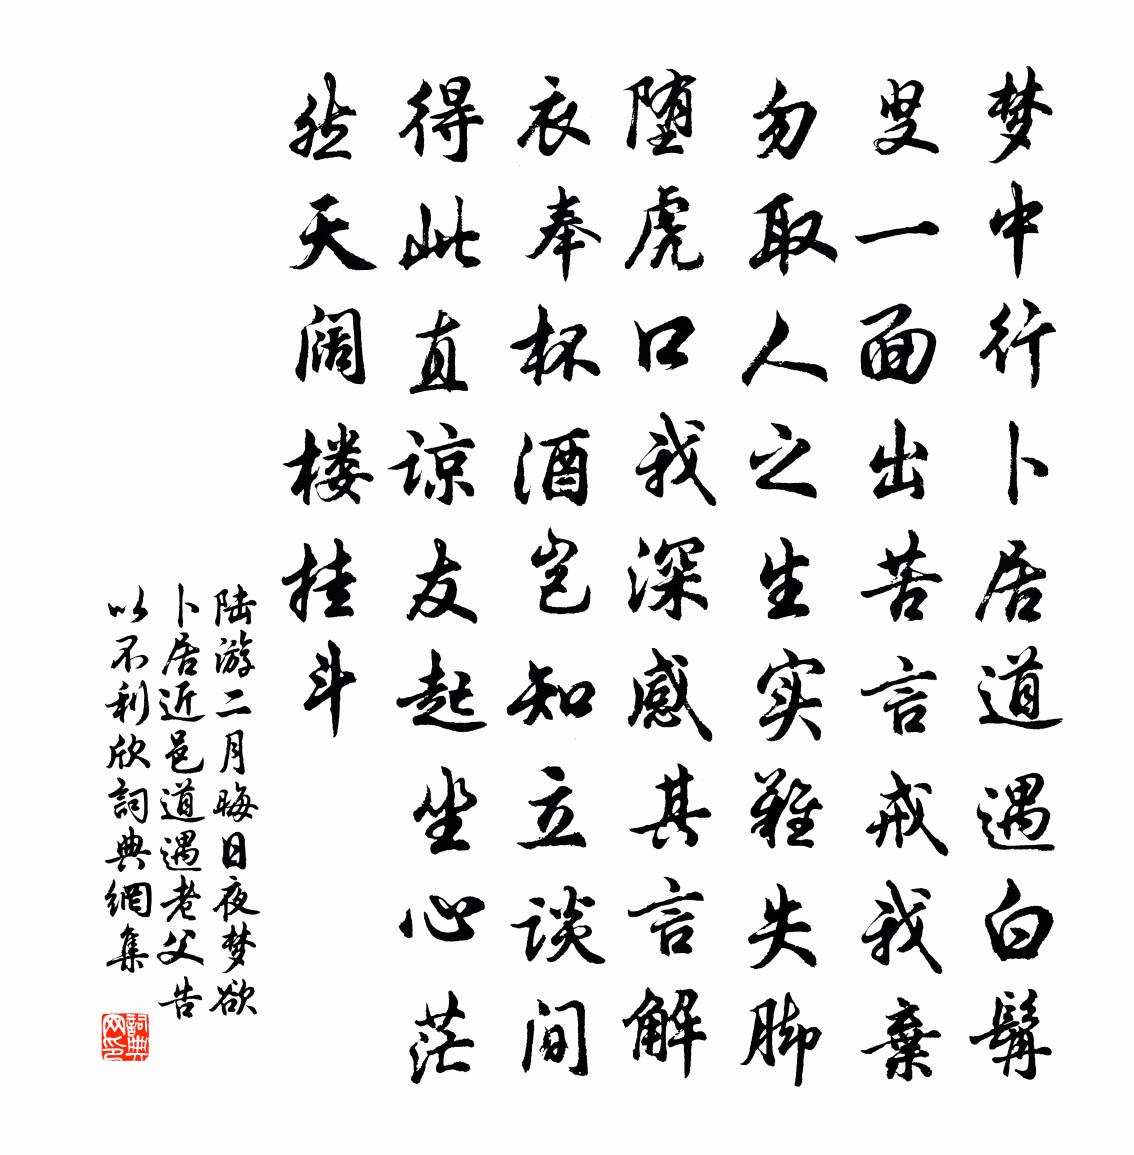 梦中行卜居道遇白髯
叟一面出苦言戒我棄
勿取人之生实难失脚
堕虎口我深感其言解
衣奉杯酒岂知立谈间
得此直谅友起坐心茫
然天阔楼挂斗
陆游二月晦日夜梦欲
卜居近邑道遇老父告
以不利欣詞典網集
詞典
网印